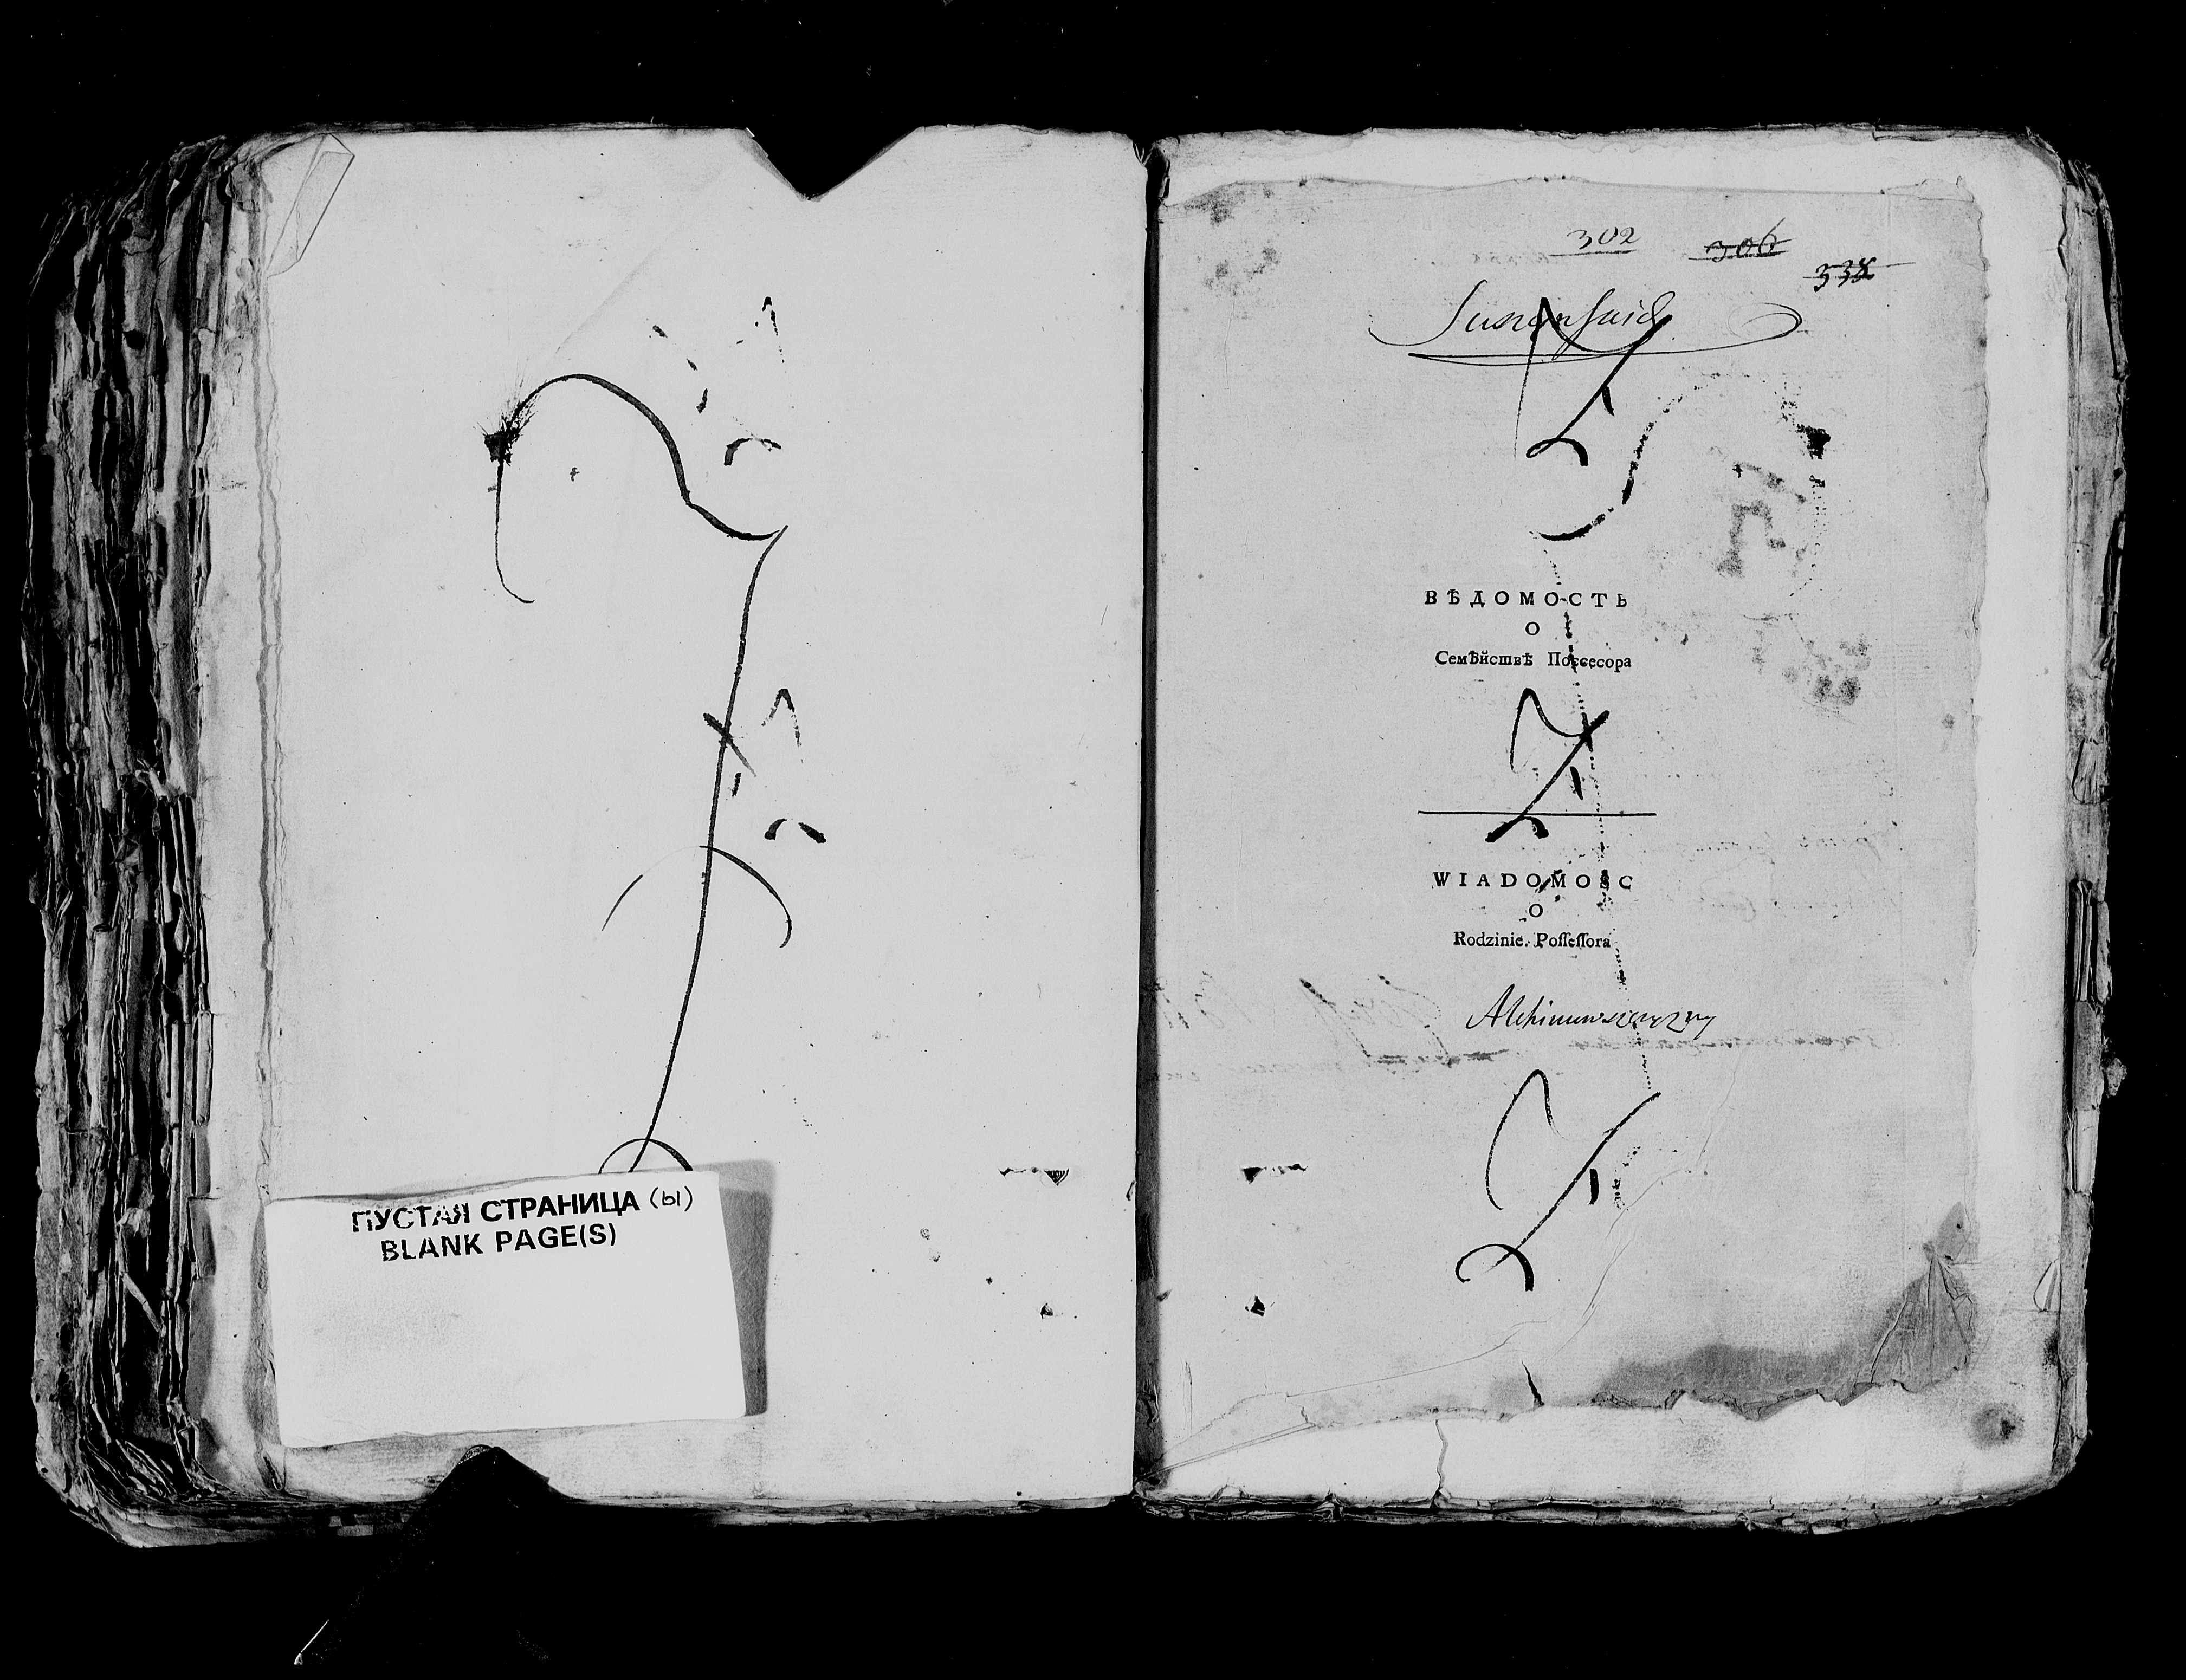 ПУСТАЯ СТРАНИЦА (ы)
BLANK PAGE(S)
302 306
338
ВѢДОМОСТЬ
О
Семѣйствѣ Поссесора
WIADOMOSC
O
Rodzinie Poſſeſſora